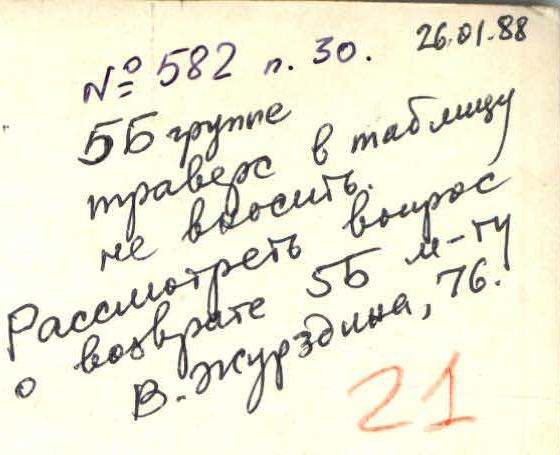 26.01.88
№ 582 п. 30.
5Б группе
траверс в таблицу
не вносить.
Рассмотреть вопрос
о возврате 5Б м-ту
В. Журздина, 76.
21